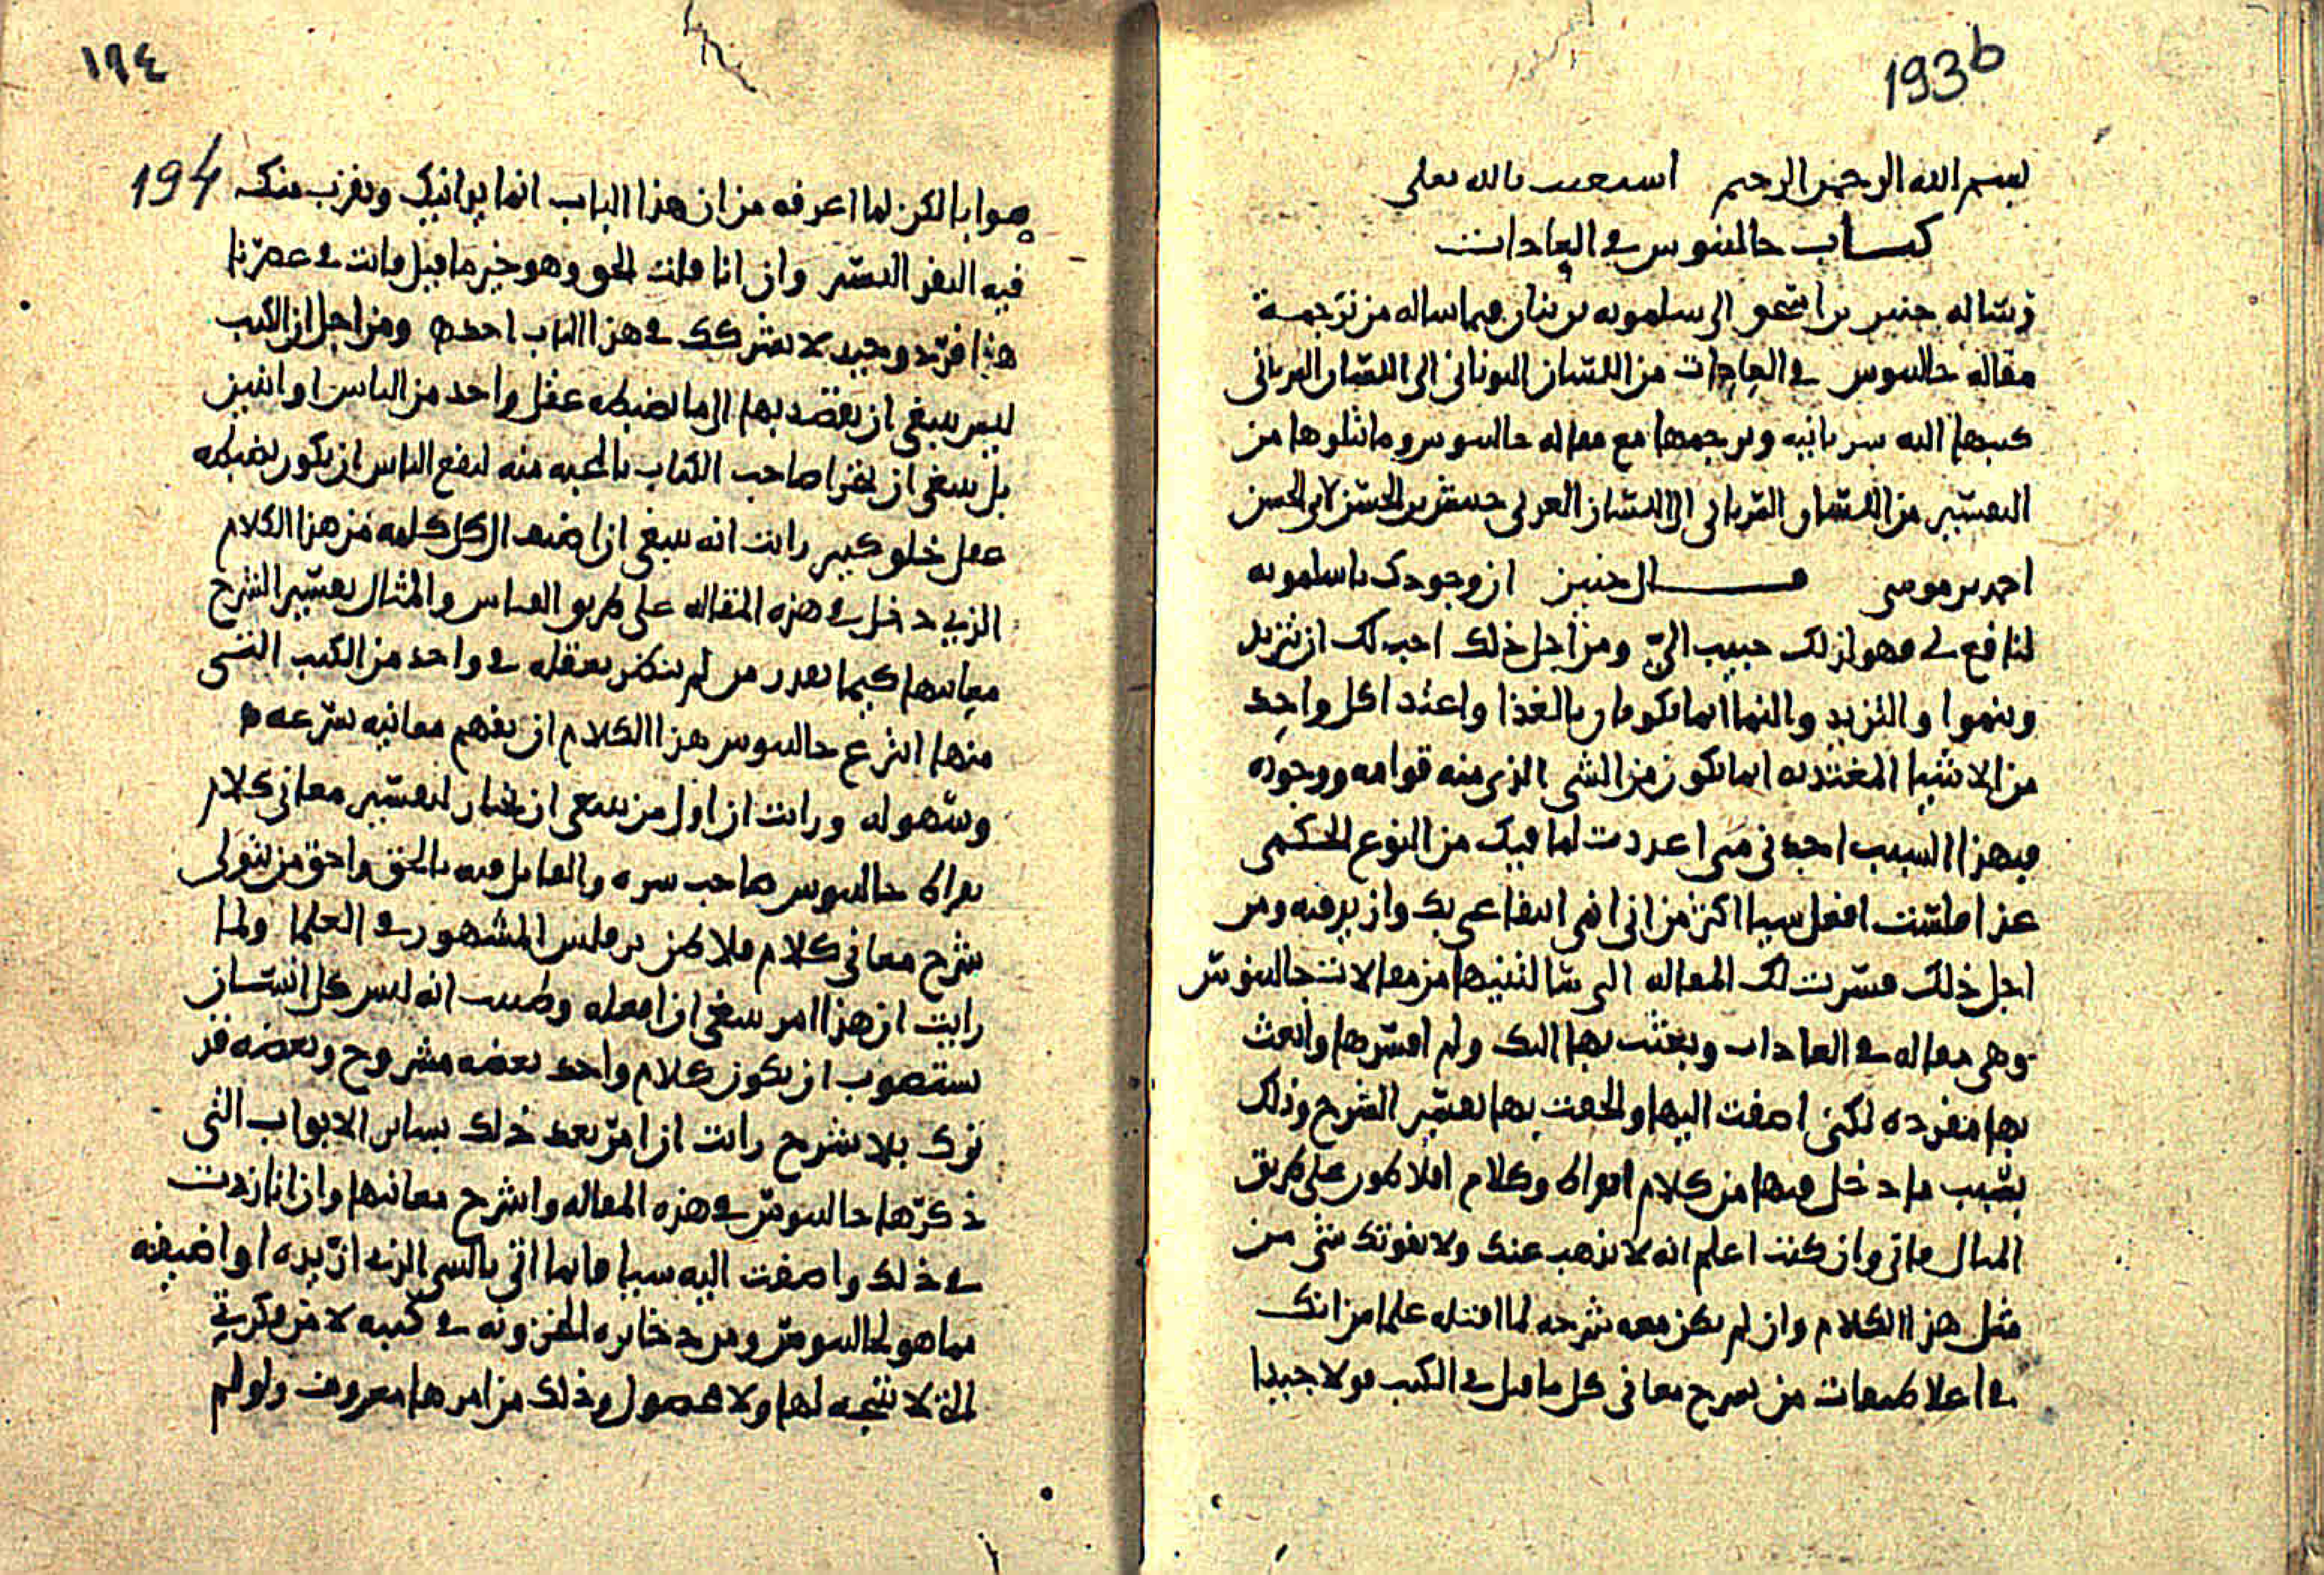 193b
بسم الله الرحمن الرحيم استعنت بالله تعلى
كتاب جالينوس في العادات
رسالة حنين بن اسحق الى سلمويه بن بنان فيما ساله من ترجمة
مقالة جالينوس في العادات من اللسان اليوناني الى اللسان السرياني
كتبها اليه سريانيه وترجمها مع مقاله جالينوس وما يتلوها من
التفسير من اللسان السرياني الى اللسان العربي حبيش بن الحسن لابي الحسن
احمد بن موسى قال حنين ان وجودك يا سلمويه
لنافع لي فهو لذلك حبيب الي ومن اجل ذلك احب لك ان تزيد
وينموا والتزيد والنما انما يكونان بالغذا واغتذا كل واحد
من الاشيا المغتذيه انما يكون من الشي الذي منه قوامه ووجوده
فبهذا السبب اجدني متى اعددت لما فيك من النوع الحكمي
غذا فلست افعل شيا اكثر من اني انمي انتفاعي بك وازيد فيه ومن
اجل ذلك فسرت لك المقاله التي سالتنيها من مقالات جالينوس
وهي مقاله في العادات وبعثت بها اليك ولم افسرها وابعث
بها مفرده لكني اضفت اليها والحقت بها تفسير الشرح وذلك
بسبب ما دخل فيها من كلام ابقراط وكلام افلاطون على طريق
المثال فاني وان كنت اعلم انه لا يذهب عنك ولا يفوتك شي من
مثل هذا الكلام وان لم يكن معه شرحه لما اقتله علما من انك
في اعلا طبقات من يشرح معاني كل ما قيل في الكتب قولا جيدا
١٩٤
194
صوابا لكن لما اعرفه من ان هذا الباب انما يدانيك ويقرب منك
فيه النفر اليسير وان انا قلت الحق وهو خير ما قيل فانت في عصرنا
هذا فريد وحيد لا يشركك في هذا الباب احد ومن اجل ان الكتب
ليس ينبغي ان يقصد بها الى ما يضبطه عقل واحد من الناس او اثنين
بل ينبغي ان صاحب الكتاب بالمحبه منه لنفع الناس ان يكون يضبطه
عقل خلق كبير رايت انه ينبغي ان اضيف الى كل كلمه من هذا الكلام
الذي دخل في هذه المقاله على طريق القياس والمثال تفسير الشرح
معانيها كيما يقدر من لم ينظر بعقله في واحد من الكتب التي
منها انتزع جالينوس هذا الكلام ان يفهم معانيه بسرعه
وسهوله ورايت ان اول من ينبغي ان يختار لتفسير معاني كلام
بقراط جالينوس صاحب سره والقايل فيه بالحق واحق من يتولى
شرح معاني كلام فلاطن برقلس المشهور في العلما ولما
رايت ان هذا امر ينبغي ان افعله وظننت انه ليس كل انسان
يستصوب ان يكون كلام واحد بعضه مشروح وبعضه قد
ترك بلا شرح رايت ان امر بعد ذلك بساير الابواب التي
ذكرها جالينوس في هذه المقاله واشرح معانيها وان انا زدت
في ذلك واضفت اليه شيا فانما اتي بالشي الذي ازيده او اضيفه
مما هو لجالينوس ومن ذخايره المخزونه في كتبه لا من فكرتي
التي لا نتيجه لها ولا محصول وذلك من امرها معروف ولو لم